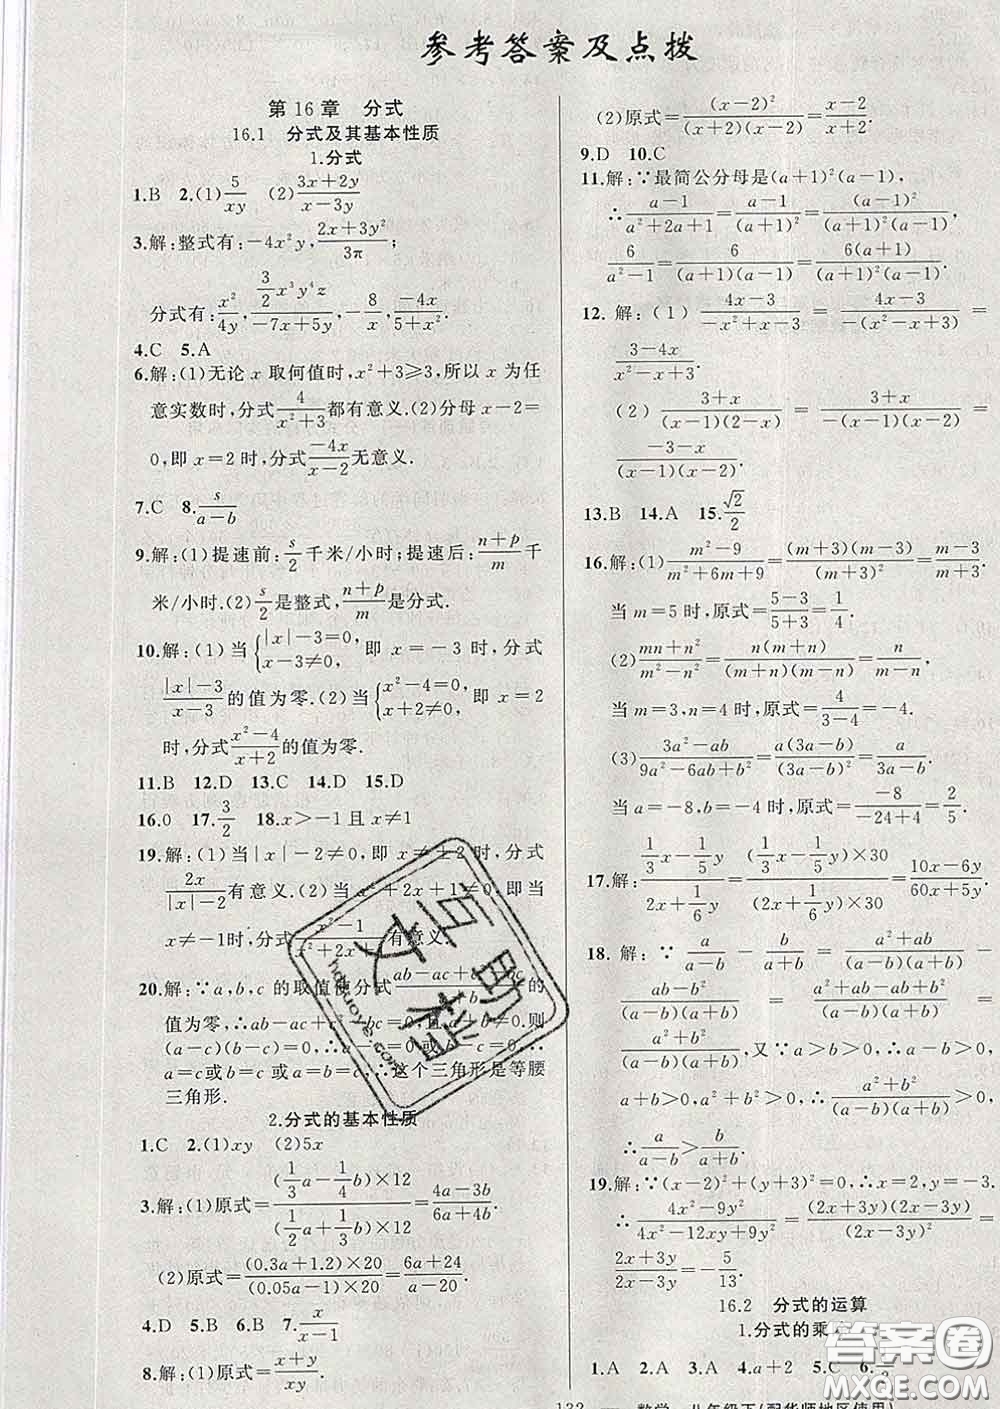 参考答案及点拨
第16章 分式
16.1 分式及其基本性质
1.分式
1.B 2.(1)5/xy (2)(3x+2y)/(x-3y)
3.解:整式有:-4x²y,(2x+3y²)/3π;
分式有:x²/4y,(3/2 x³y⁴z)/(-7x+5y),-8/x,(-4x)/(5+x²).
4.C 5.A
6.解:(1)无论x取何值时,x²+3≥3,所以x为任
意实数时,分式4/(x²+3)都有意义.(2)分母x-2=
0,即x=2时,分式(-4x)/(x-2)无意义.
7.C 8.s/(a-b)
9.解:(1)提速前:s/2千米/小时;提速后:(n+p)/m千
米/小时.(2)s/2是整式,(n+p)/m是分式.
10.解:(1)当{|x|-3=0, x-3≠0, 即x=-3时,分式
(|x|-3)/(x-3)的值为零.(2)当{x²-4=0, x+2≠0, 即x=2
时,分式(x²-4)/(x+2)的值为零.
11.B 12.D 13.C 14.D 15.D
16.0 17.3/2 18.x>-1且x≠1
19.解:(1)当|x|-2≠0,即x≠±2时,分式
2x/(|x|-2)有意义.(2)当x²+2x+1≠0,即当
x≠-1时,分式(x²-1)/(x²+2x+1)有意义.
20.解:∵a,b,c的取值使分式(ab-ac+c²-bc)/ 的
值为零,∴ab-ac+c²-bc=0且a-b≠0.则
(a-c)(b-c)=0,∴a-c=0或b-c=0,
∴a=c或b=c或a=b=c,∴这个三角形是等腰
三角形.
2.分式的基本性质
1.C 2.(1)xy (2)5x
3.解:(1)原式=((1/3 a-1/4 b)×12)/((1/2 a+1/3 b)×12)=(4a-3b)/(6a+4b).
(2)原式=((0.3a+1.2)×20)/((0.05a-1)×20)=(6a+24)/(a-20).
4.D 5.B 6.B 7.x/(x-1)
8.解:(1)原式=(x+y)/xy.
(2)原式=(x-2)²/((x+2)(x-2))=(x-2)/(x+2).
9.D 10.C
11.解:∵最简公分母是(a+1)²(a-1),
∴(a-1)/(a²+2a+1)=(a-1)/(a+1)²=(a-1)²/((a+1)²(a-1)),
6/(a²-1)=6/((a+1)(a-1))=6(a+1)/((a+1)²(a-1)).
12.解:(1)(4x-3)/(-x²+x-3)=(4x-3)/(-(x²-x+3))=
(3-4x)/(x²-x+3).
(2)(3+x)/((x-1)(2-x))=(3+x)/(-(x-1)(x-2))=
(-3-x)/((x-1)(x-2)).
13.B 14.A 15.√2/2
16.解:(1)(m²-9)/(m²+6m+9)=((m+3)(m-3))/(m+3)²=(m-3)/(m+3).
当m=5时,原式=(5-3)/(5+3)=1/4.
(2)(mn+n²)/(m²-n²)=n(m+n)/((m+n)(m-n))=n/(m-n),
当m=3,n=4时,原式=4/(3-4)=-4.
(3)(3a²-ab)/(9a²-6ab+b²)=a(3a-b)/(3a-b)²=a/(3a-b).
当a=-8,b=-4时,原式=(-8)/(-24+4)=2/5.
17.解:(1/3 x-1/5 y)/(2x+1/6 y)=((1/3 x-1/5 y)×30)/((2x+1/6 y)×30)=(10x-6y)/(60x+5y).
18.解:∵a/(a-b)-b/(a+b)=(a²+ab)/((a-b)(a+b))-
(ab-b²)/((a-b)(a+b))=(a²+ab-ab+b²)/((a-b)(a+b))=
(a²+b²)/((a-b)(a+b)),又∵a>b>0,∴a-b>0,
a+b>0,a²>0,b²>0,∴(a²+b²)/((a-b)(a+b))>0,
∴a/(a-b)>b/(a+b).
19.解:∵(x-2)²+(y+3)²=0,∴x=2,y=-3.
∴(4x²-9y²)/(4x²-12xy+9y²)=((2x+3y)(2x-3y))/(2x-3y)²=
(2x+3y)/(2x-3y)=-5/13.
16.2 分式的运算
1.分式的乘
1.A 2.A 3.A 4.a+2 5.C 6.
数学 八年级下(配华师地区使用)
互助文档
hdzuoye.com
答案圈
MXQE.COM